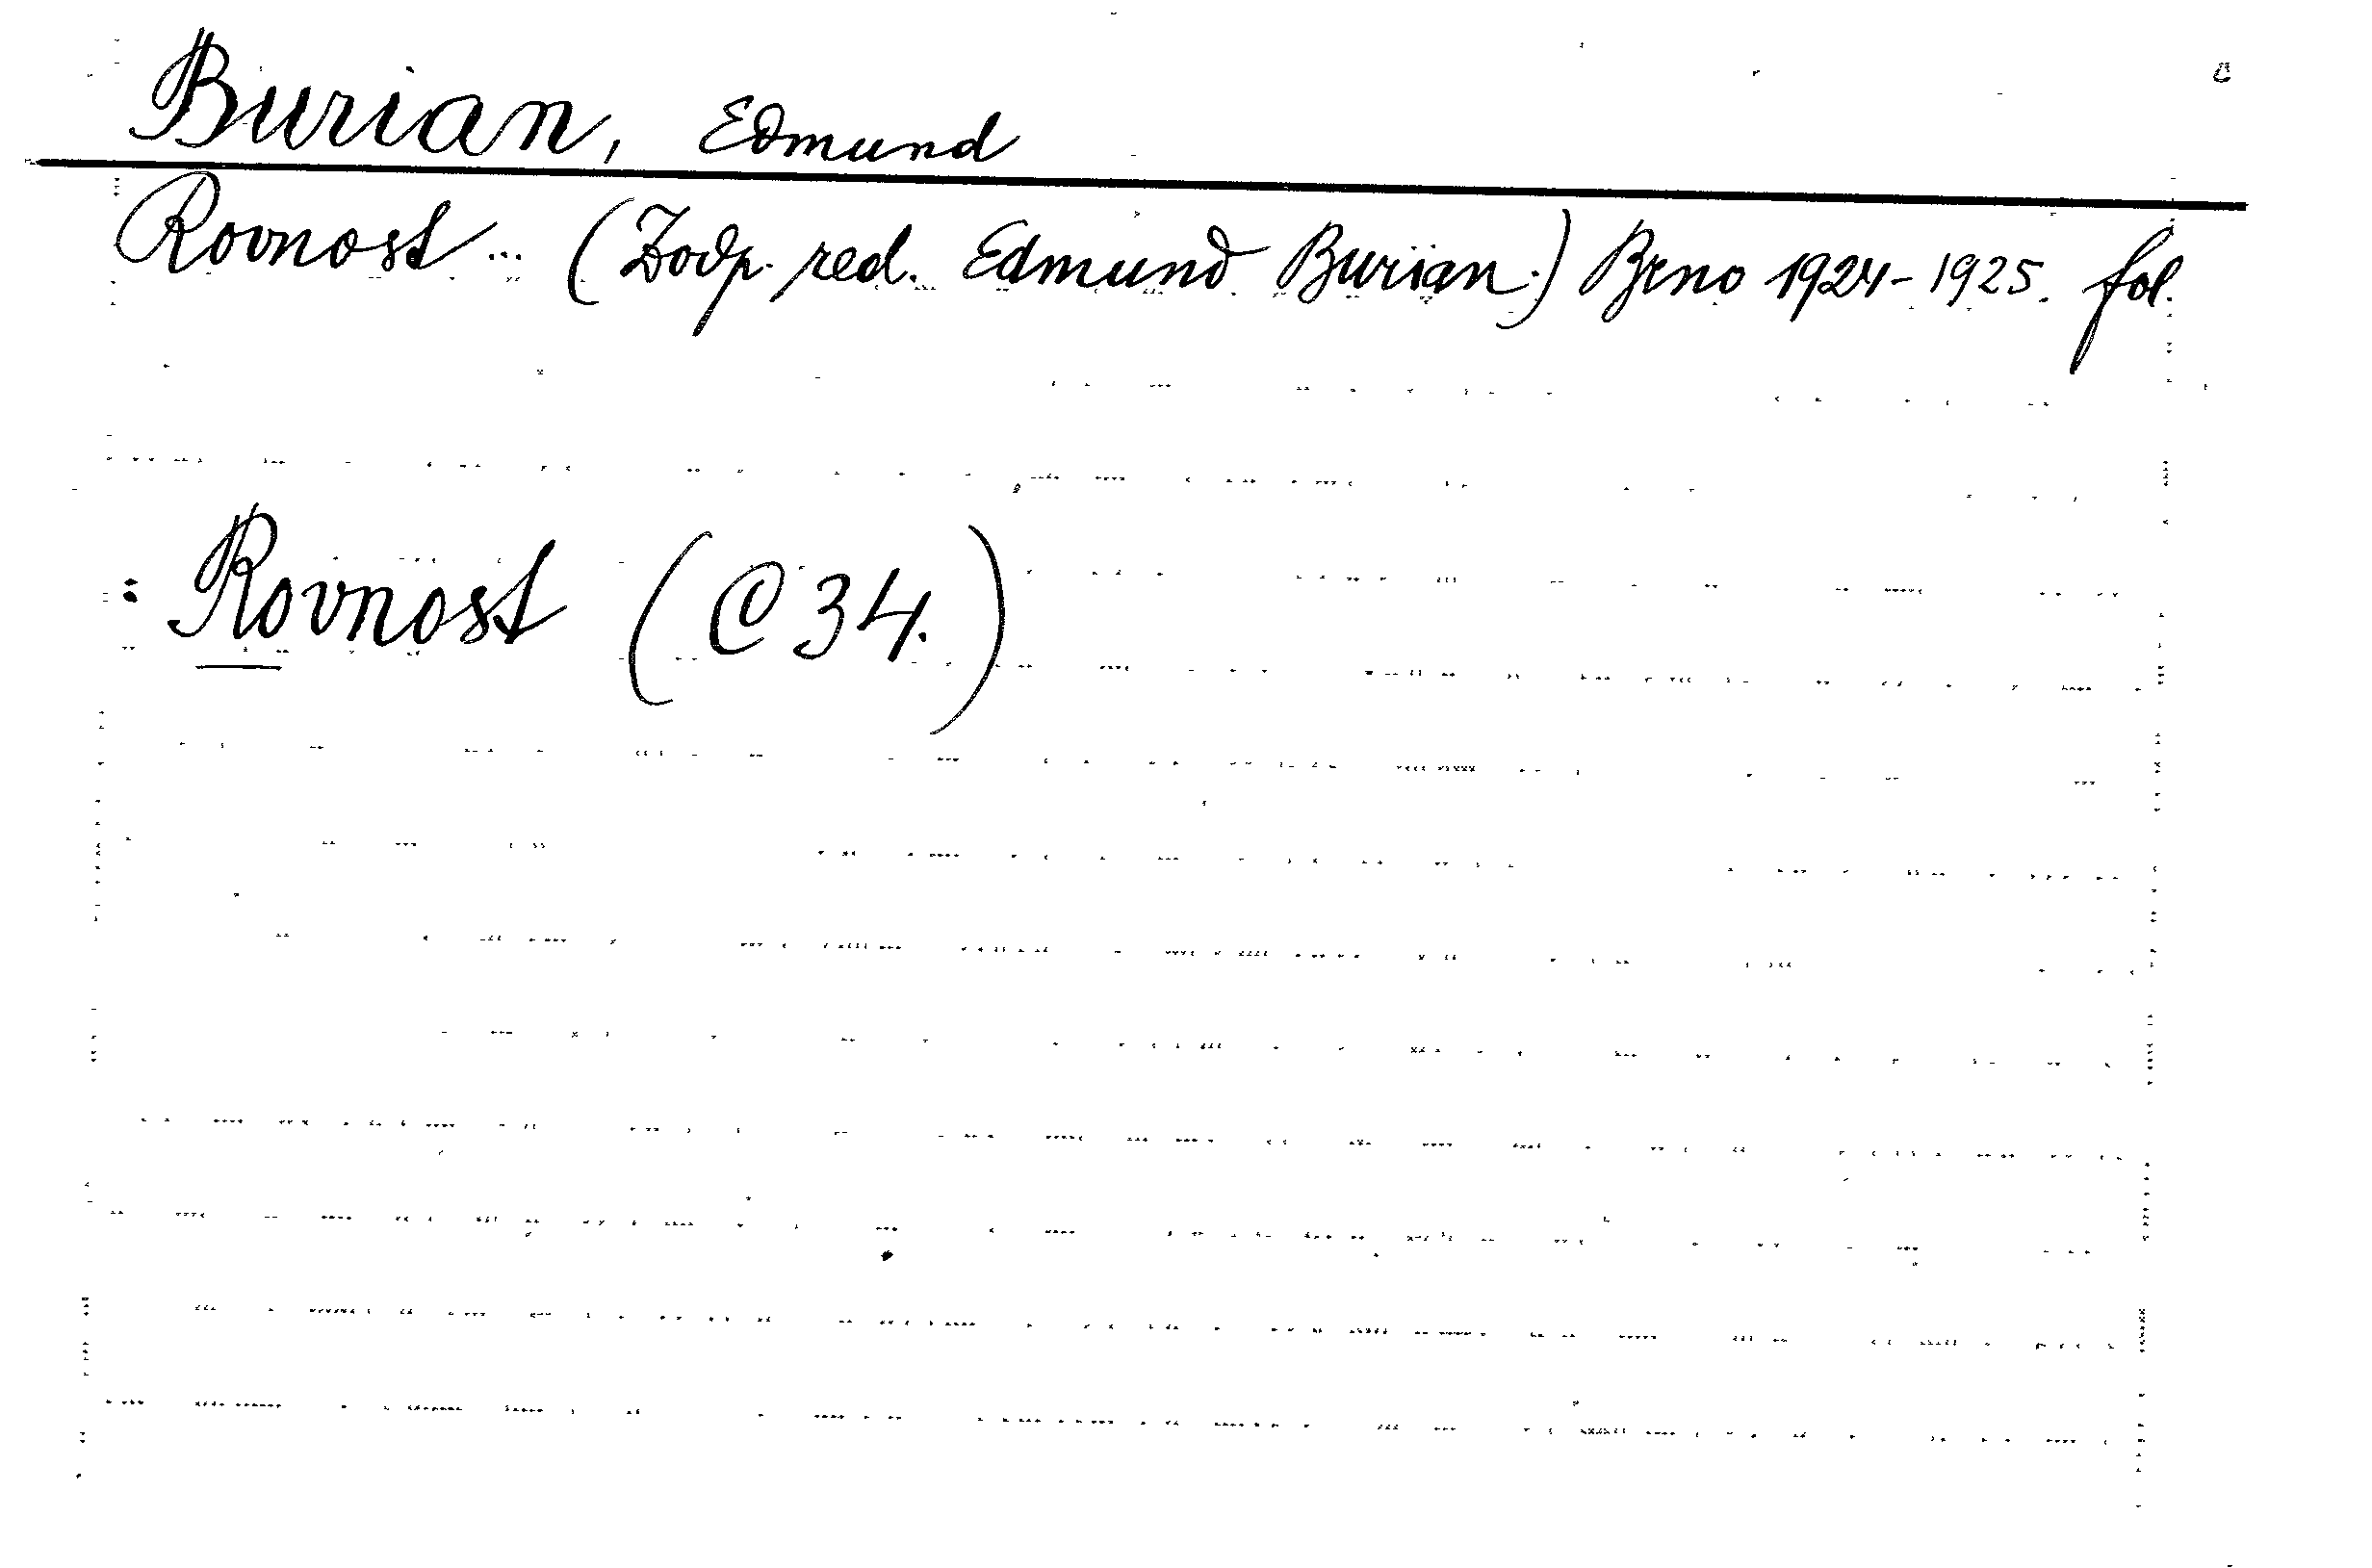 Burian, Edmund
Rovnost ... (Zodp. red. Edmund Burian.) Brno 1924-1925. fol.
: Rovnost (C 34.)